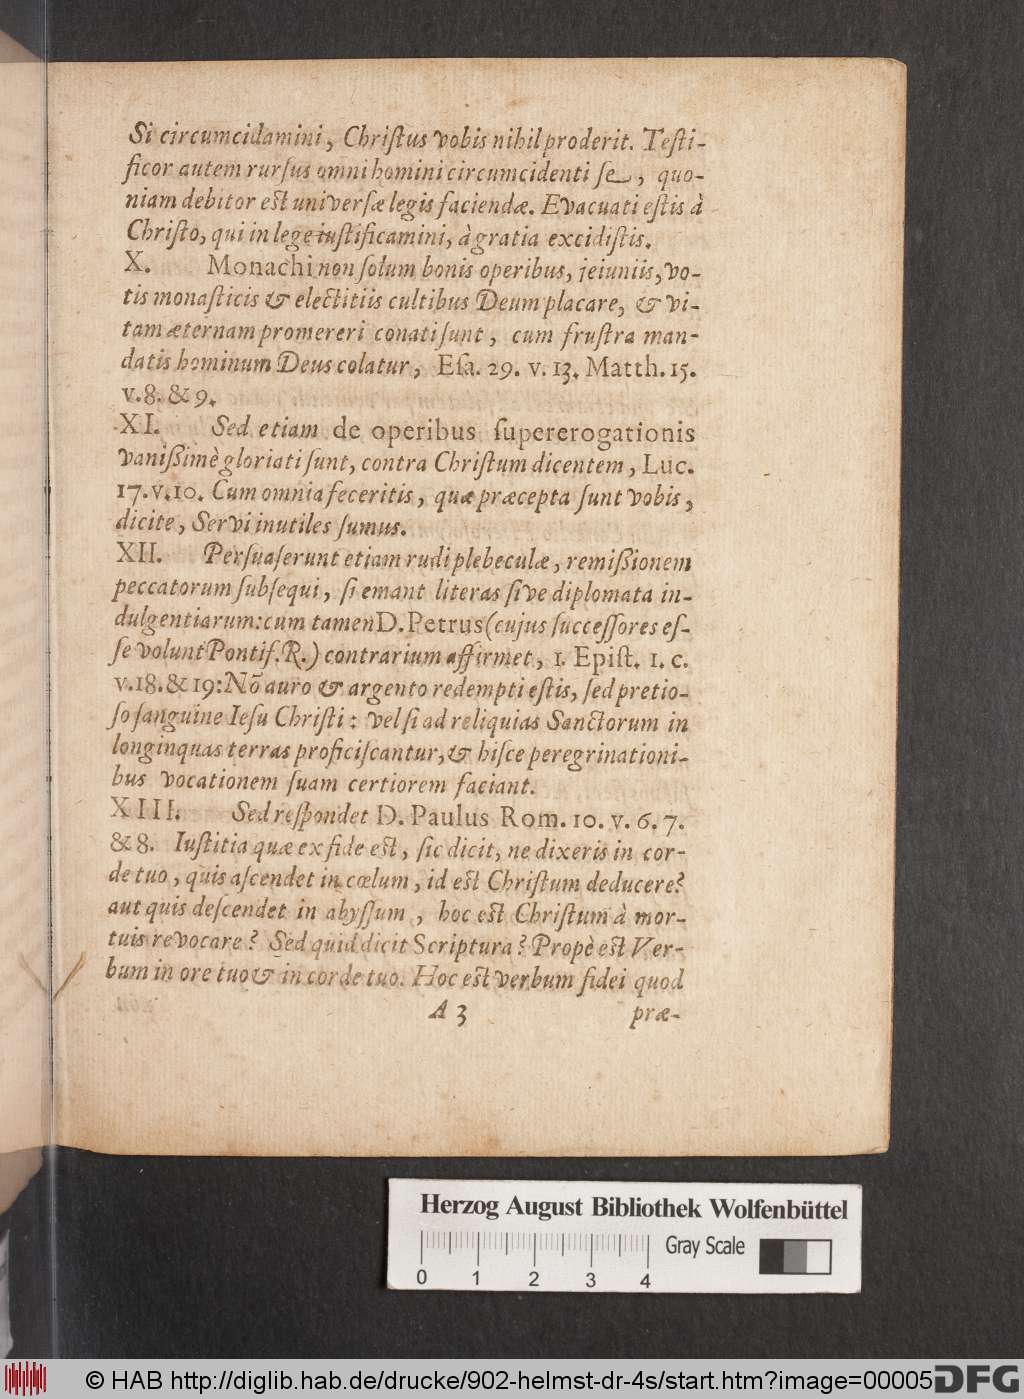 Si circumcidamini, Christus vobis nihil proderit. Testi-
ficor autem rursus omni homini circumcidenti se, quo-
niam debitor est universæ legis faciendæ. Evacuati estis à
Christo, qui in lege iustificamini, à gratia excidistis.
X. Monachi non solum bonis operibus, jejuniis, vo-
tis monasticis & electitiis cultibus Deum placare, & vi-
tam æternam promereri conati sunt, cum frustra man-
datis hominum Deus colatur, Esa. 29. v. 13. Matth. 15.
v. 8. & 9.
XI. Sed etiam de operibus supererogationis
vanißimè gloriati sunt, contra Christum dicentem, Luc.
17. v. 10. Cum omnia feceritis, quæ præcepta sunt vobis,
dicite, Servi inutiles sumus.
XII. Persuaserunt etiam rudi plebeculæ, remißionem
peccatorum subsequi, si emant literas sive diplomata in-
dulgentiarum: cum tamen D. Petrus (cujus successores es-
se volunt Pontif. R.) contrarium affirmet, 1. Epist. 1. c.
v. 18. & 19: Nõ auro & argento redempti estis, sed pretio-
so sanguine Iesu Christi: vel si ad reliquias Sanctorum in
longinquas terras proficiscantur, & hisce peregrinationi-
bus vocationem suam certiorem faciant.
XIII. Sed respondet D. Paulus Rom. 10. v. 6. 7.
& 8. Iustitia quæ ex fide est, sic dicit, ne dixeris in cor-
de tuo, quis ascendet in cœlum, id est Christum deducere?
aut quis descendet in abyssum, hoc est Christum à mor-
tuis revocare? Sed quid dicit Scriptura? Propè est Ver-
bum in ore tuo & in corde tuo. Hoc est verbum fidei quod
A 3 præ-
Herzog August Bibliothek Wolfenbüttel
Gray Scale
0 1 2 3 4
© HAB http://diglib.hab.de/drucke/902-helmst-dr-4s/start.htm?image=00005
DFG